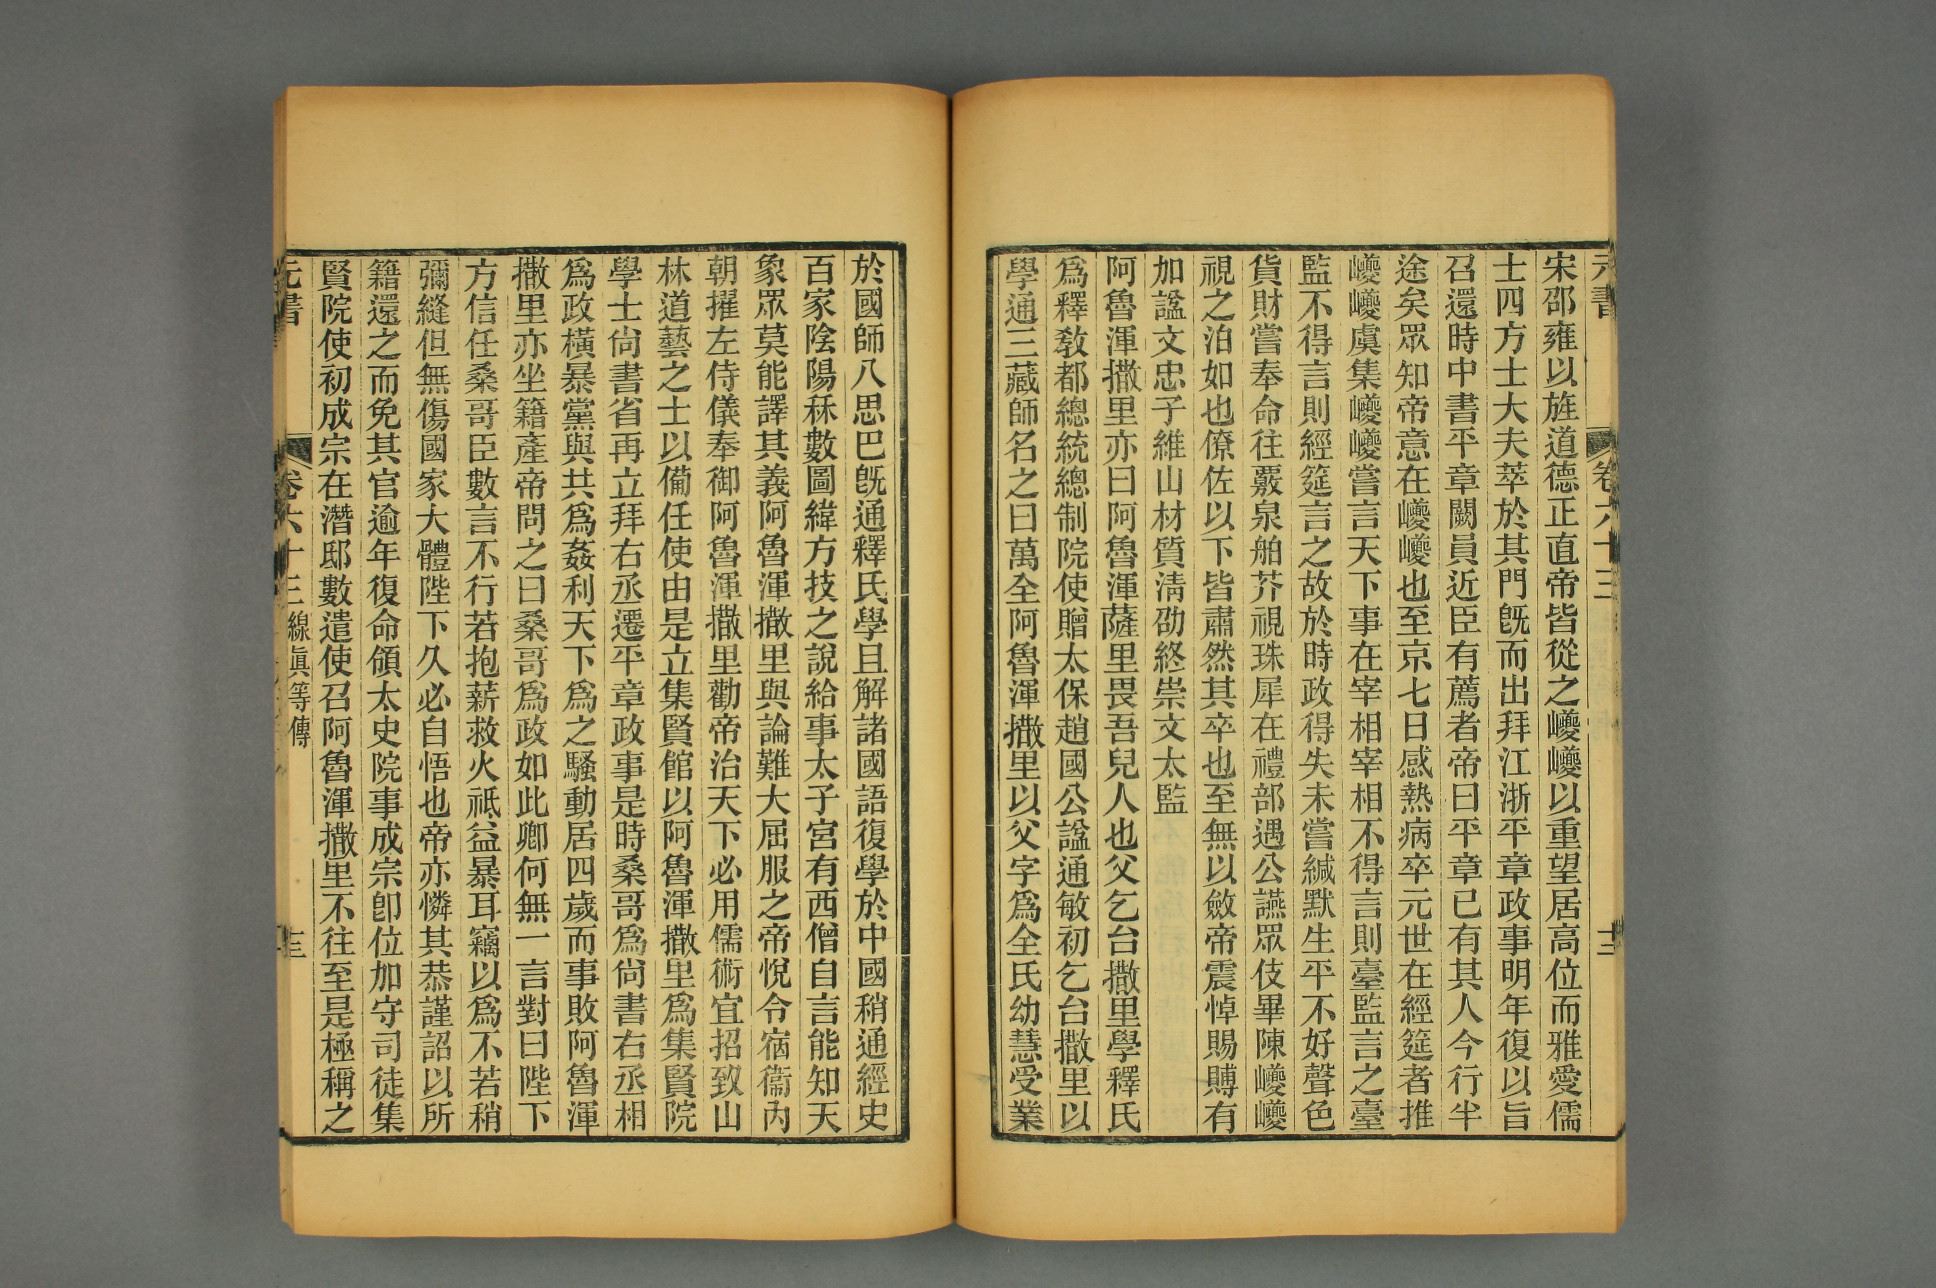 元書
卷六十三
十二
宋邵雍以旌道德正直帝皆從之巙巙以重望居高位而雅愛儒
士四方士大夫萃於其門旣而出拜江浙平章政事明年復以旨
召還時中書平章闕員近臣有薦者帝曰平章已有其人今行半
途矣眾知帝意在巙巙也至京七日感熱病卒元世在經筵者推
巙巙虞集巙巙嘗言天下事在宰相宰相不得言則臺監言之臺
監不得言則經筵言之故於時政得失未嘗緘默生平不好聲色
貨財嘗奉命往覈泉舶芥視珠犀在禮部遇公讌眾伎畢陳巙巙
視之泊如也僚佐以下皆肅然其卒也至無以斂帝震悼賜賻有
加諡文忠子維山材質淸劭終崇文太監
阿魯渾撒里亦曰阿魯渾薩里畏吾兒人也父乞台撒里學釋氏
爲釋敎都總統總制院使贈太保趙國公諡通敏初乞台撒里以
學通三藏師名之曰萬全阿魯渾撒里以父字爲全氏幼慧受業
於國師八思巴旣通釋氏學且解諸國語復學於中國稍通經史
百家陰陽秝數圖緯方技之說給事太子宮有西僧自言能知天
象眾莫能譯其義阿魯渾撒里與論難大屈服之帝悅令宿衞內
朝擢左侍儀奉御阿魯渾撒里勸帝治天下必用儒術宜招致山
林道藝之士以備任使由是立集賢館以阿魯渾撒里爲集賢院
學士尙書省再立拜右丞遷平章政事是時桑哥爲尙書右丞相
爲政橫暴黨與共爲姦利天下爲之騷動居四歲而事敗阿魯渾
撒里亦坐籍產帝問之曰桑哥爲政如此卿何無一言對曰陛下
方信任桑哥臣數言不行若抱薪救火祗益暴耳竊以爲不若稍
彌縫但無傷國家大體陛下久必自悟也帝亦憐其恭謹詔以所
籍還之而免其官逾年復命領太史院事成宗卽位加守司徒集
賢院使初成宗在潛邸數遣使召阿魯渾撒里不往至是極稱之
元書
卷六十三 線眞等傳
十三